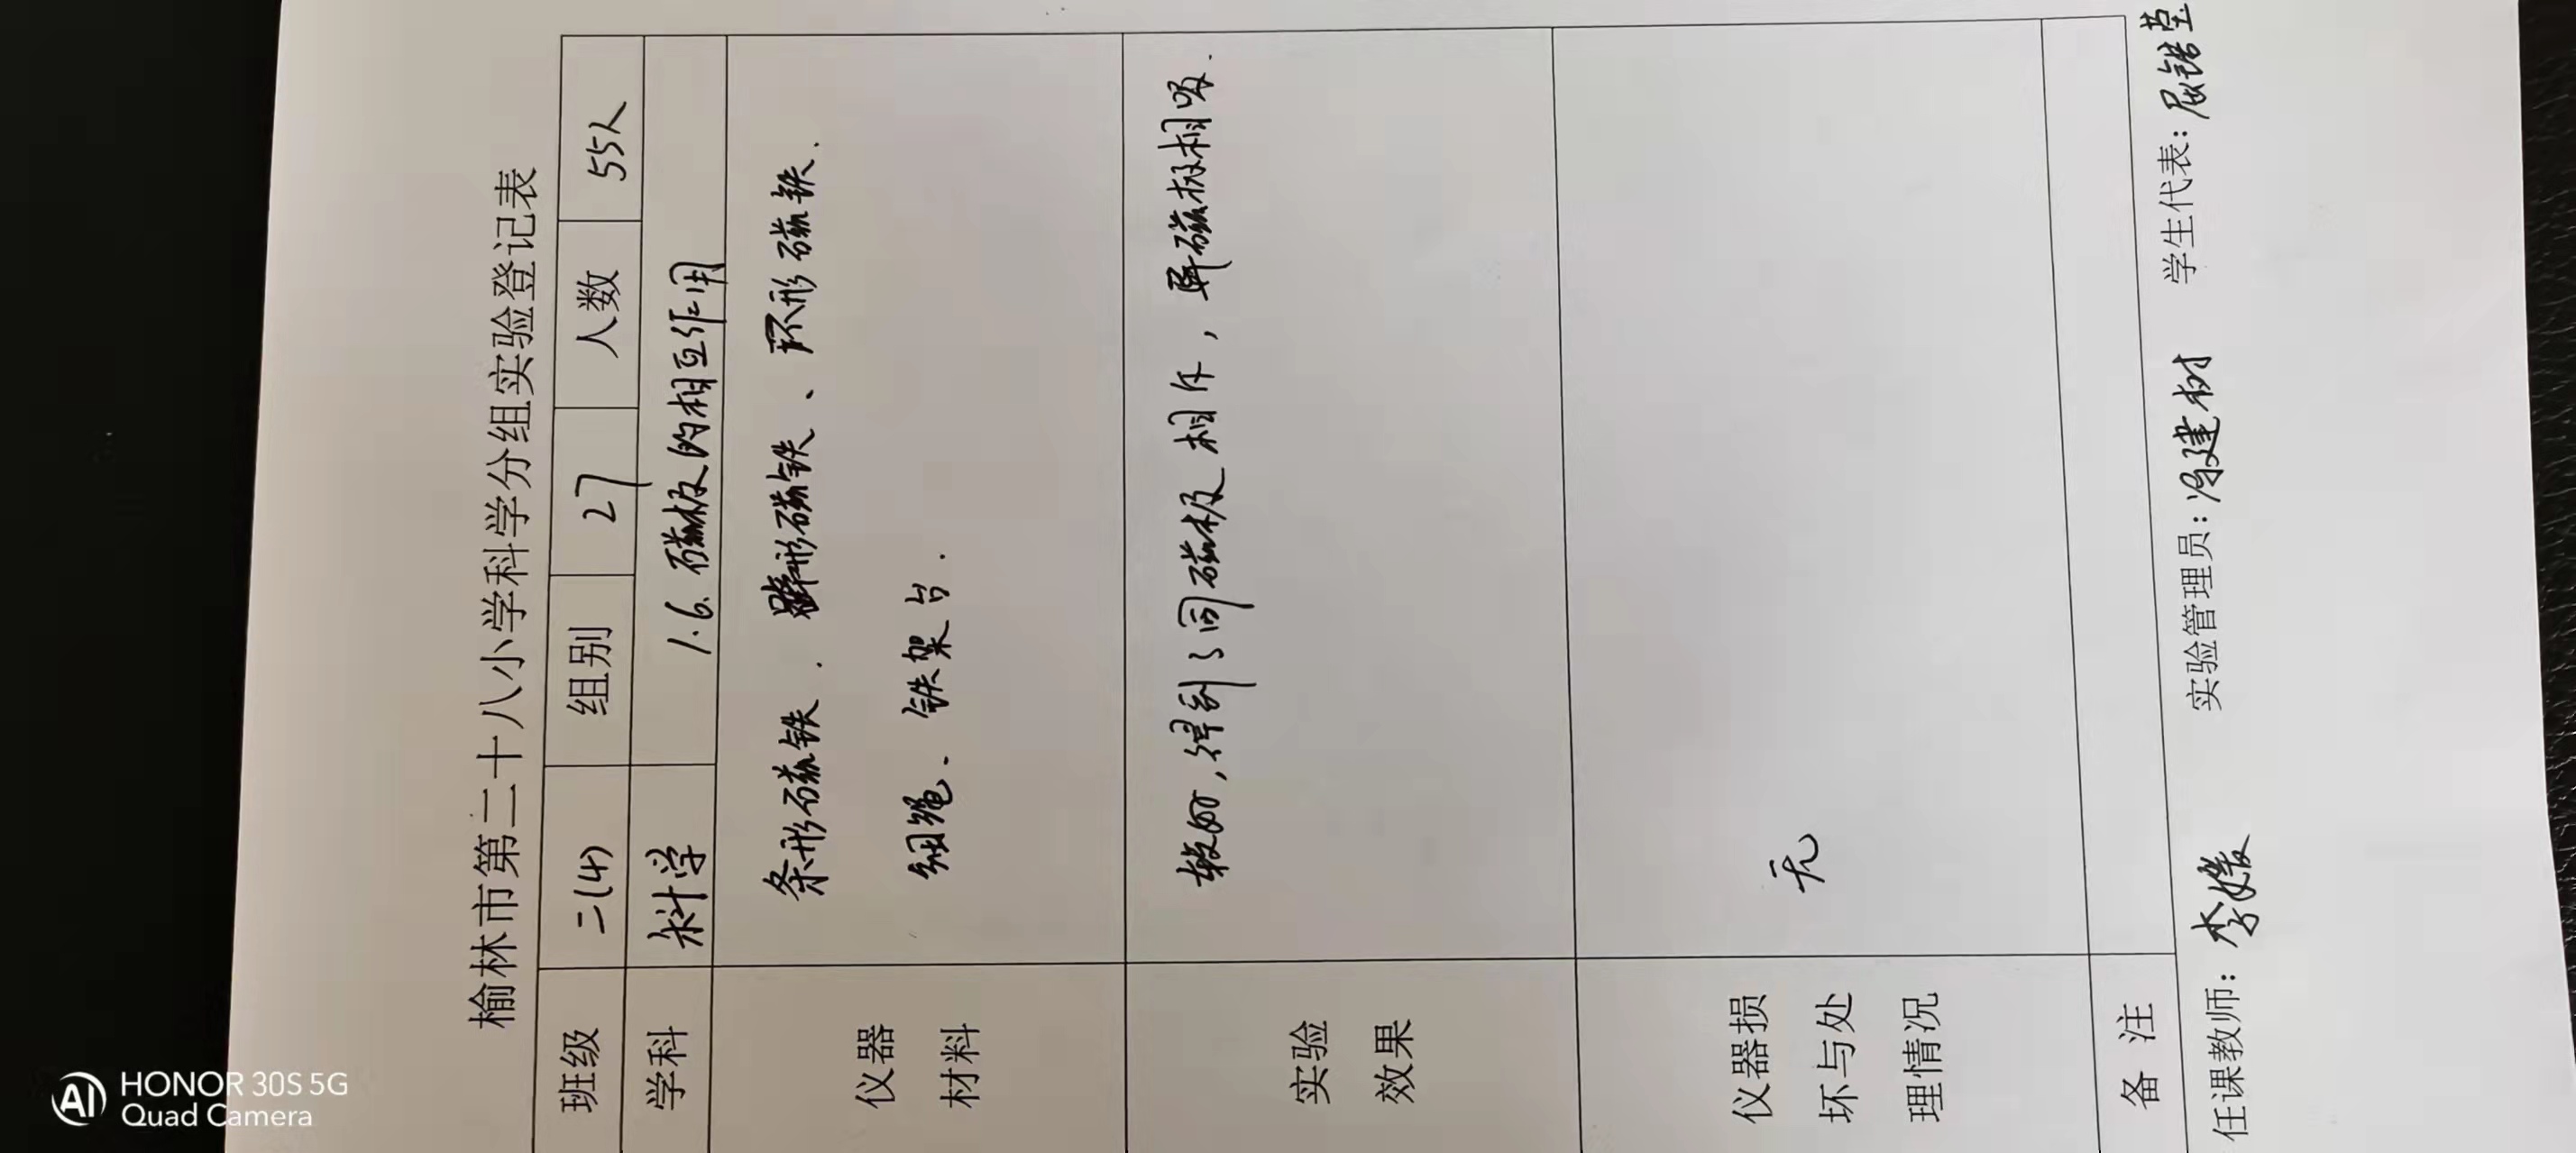 榆林市第二十八小学科学分组实验登记表
班级 二(4) 组别 27 人数 55人
学科 科学 1.6.磁极的相互作用
仪器
材料
条形磁铁.蹄形磁铁、环形磁铁.
细绳、铁架台.
实验
效果
较好,得到了同磁极相斥,异磁极相吸.
仪器损
坏与处
理情况
无
备 注
任课教师: 李媛 实验管理员: 建树 学生代表: 屈锘莹
HONOR 30S 5G
Quad Camera
AI